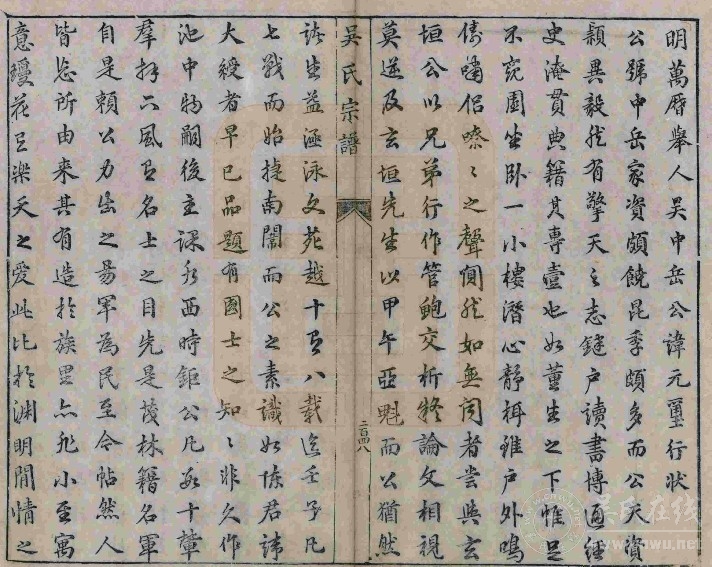 明萬曆舉人吳中岳公諱元璽行狀
公號中岳家資頗饒昆季頗多而公天資
穎異毅然有擎天之志鍵户讀書博通經
史淹貫典籍其專壹也如董生之下帷足
不窺園坐卧一小樓潛心靜揖雖户外鳴
儔嘯侶嘹〻之聲側然如無聞者嘗與玄
垣公以兄弟行作管鮑交析疑論文相視
莫逆及玄垣先生以甲午亞魁而公猶然
吳氏宗譜
二四八
諸生益涵泳文苑越十有八載迄壬子凡
七戰而始捷南闈而公之素識如陳君諱
大綬者早已品題有國士之知〻非久作
池中物嗣後主課於西時鉅公凡數十輩
羣推六風有名士之目先是茂林籍名軍
自是賴公力出之易軍為民至今帖然人
皆忘所由來其有造於族里亦非小至寓
意纓花有樂天之愛此比於淵明閒情之
吳氏在線